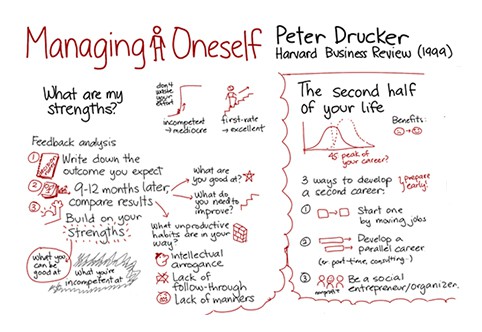 Managing Oneself
Peter Drucker
Harvard Business Review (1999)
What are my
strengths?
don't
waste
your
effort
incompetent
→ mediocre
first-rate
→ excellent
Feedback analysis
1
Write down the
outcome you expect
2
9-12 months later,
compare results
3
Build on your
strengths
What are
you good at?
What do
you need to
improve?
What unproductive
habits are in your
way?
Intellectual
arrogance
Lack of
follow-through
Lack of manners
What
you can
be good at
What you're
incompetent at
The second half
of your life
Benefits:
45 peak of
your career?
3 ways to develop
a second career:
prepare
early!
1
Start one
by moving jobs
2
Develop a
parallel career
(or part-time, consulting...)
3
nonprofit
Be a social
entrepreneur/organizer.